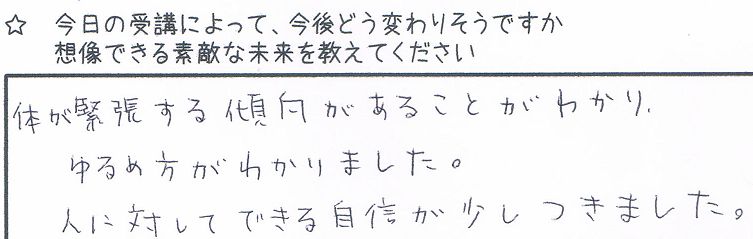 ☆ 今日の受講によって、今後どう変わりそうですか
想像できる素敵な未来を教えてください
体が緊張する傾向があることがわかり、
ゆるめ方がわかりました。
人に対してできる自信が少しつきました。